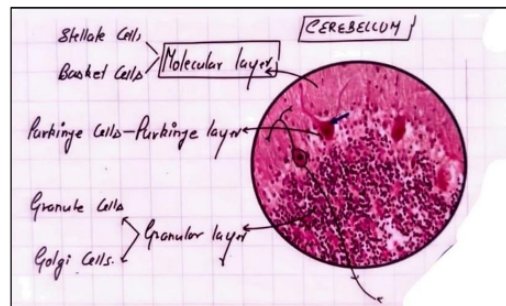 CEREBELLUM
Stellate Cells
Basket Cells
Molecular layer
Purkinje Cells – Purkinje layer
Granule Cells
Golgi Cells.
Granular layer